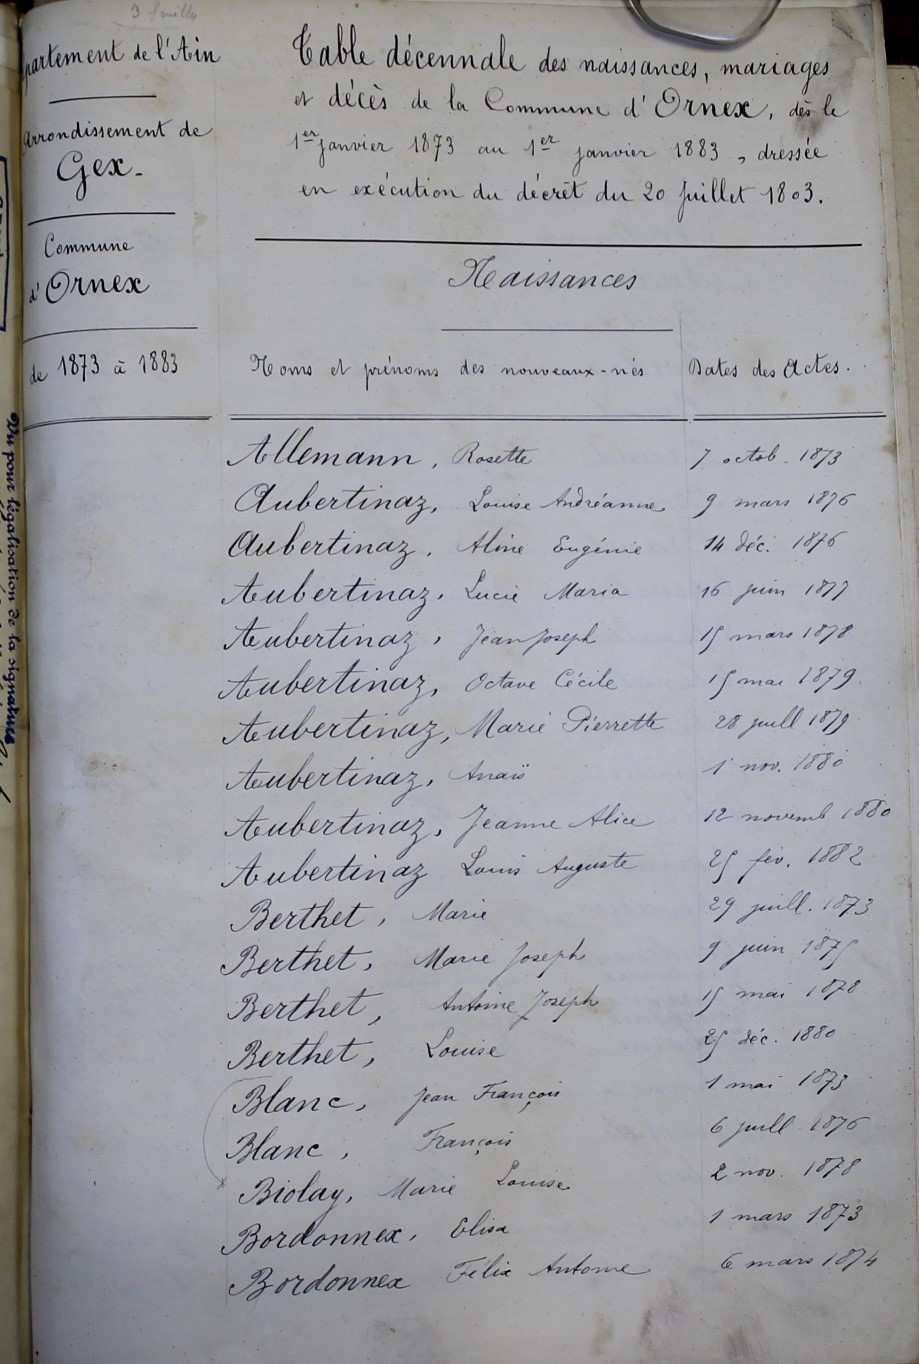 3 feuilles
partement de l'Ain
Arrondissement de
Gex.
Commune
d'Ornex
de 1873 à 1883
Table décennale des naissances, mariages
et décès de la Commune d'Ornex, dès le
1er janvier 1873 au 1er janvier 1883, dressée
en exécution du décret du 20 juillet 1803.
Naissances
Noms et prénoms des nouveaux-nés Dates des Actes.
Allemann, Rosette 7 octob. 1873
Aubertinaz, Louise Andréanne 9 mars 1876
Aubertinaz, Aline Eugénie 14 déc. 1876
Aubertinaz, Lucie Maria 16 juin 1877
Aubertinaz, Jean Joseph 15 mars 1878
Aubertinaz, Octave Cécile 15 mai 1879
Aubertinaz, Marie Pierrette 28 juill 1879
Aubertinaz, Anaïs 1 nov. 1880
Aubertinaz, Jeanne Alice 12 novemb 1880
Aubertinaz Louis Auguste 25 fév. 1882
Berthet, Marie 29 juill. 1873
Berthet, Marie Joseph 9 juin 1875
Berthet, Antoine Joseph 15 mai 1878
Berthet, Louise 25 déc. 1880
Blanc, Jean François 1 mai 1873
Blanc, François 6 juill 1876
Biolay, Marie Louise 2 nov. 1878
Bordonnex, Elisa 1 mars 1873
Bordonnex Félix Antoine 6 mars 1874
Vu pour légalisation de la signature